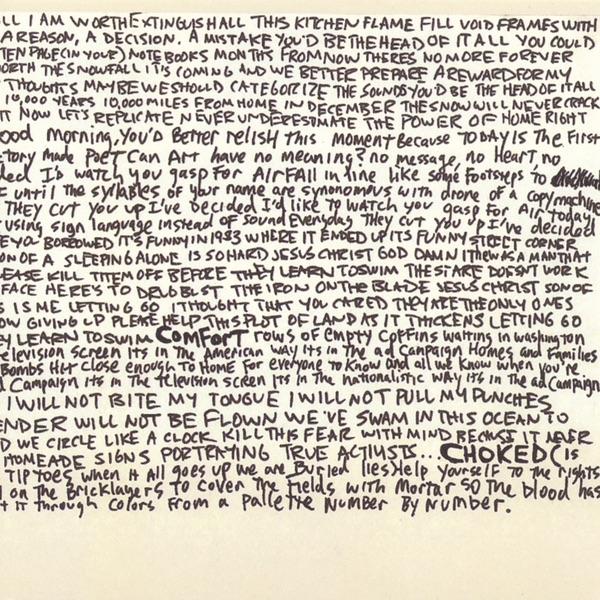 ALL I AM WORTH EXTINGUISH ALL THIS KITCHEN FLAME FILL VOID FRAMES WITH
A REASON, A DECISION. A MISTAKE YOU'D BE THE HEAD OF IT ALL YOU COULD
TEN PAGE (IN YOUR) NOTEBOOKS MONTHS FROM NOW THERES NO MORE FOREVER
ORTH THE SNOWFALL IT'S COMING AND WE BETTER PREPARE A REWARD FOR MY
THOUGHTS MAYBE WE SHOULD CATEGORIZE THE SOUNDS YOU'D BE THE HEAD OF IT ALL
10,000 YEARS 10,000 MILES FROM HOME IN DECEMBER THE SNOW WILL NEVER CRACK
IT NOW LET'S REPLICATE NEVER UNDERESTIMATE THE POWER OF HOME RIGHT
OOD MORNING, YOU'D BETTER RELISH THIS MOMENT BECAUSE TODAY IS THE FIRST
TORY MADE POET CAN ART HAVE NO MEANING? NO MESSAGE, NO HEART NO
DED I'D WATCH YOU GASP FOR AIR FALL IN LINE LIKE SOME FOOTSTEPS TO
UNTIL THE SYLLABLES OF YOUR NAME ARE SYNONOMOUS WITH DRONE OF A COPY MACHINE
THEY CUT YOU UP I'VE DECIDED I'D LIKE TO WATCH YOU GASP FOR AIR TODAY
USING SIGN LANGUAGE INSTEAD OF SOUND EVERYDAY THEY CUT YOU UP I'VE DECIDED
E YOU BORROWED IT'S FUNNY IN 1983 WHERE IT ENDED UP ITS FUNNY STREET CORNER
ON OF A SLEEPING ALONE IS SO HARD JESUS CHRIST GOD DAMN IT HEW AS A MAN THAT
EASE KILL THEM OFF BEFORE THEY LEARN TO SWIM THE STARE DOESN'T WORK
FACE HERE'S TO DRUG BLST THE IRON ON THE BLADE JESUS CHRIST SON OF
S IS ME LETTING GO I THOUGHT THAT YOU CARED THEY ARE THE ONLY ONES
OW GIVING UP PLEASE HELP THIS PLOT OF LAND AS IT THICKENS LETTING GO
EY LEARN TO SWIM COMFORT ROWS OF EMPTY COFFINS WAITING IN WASHINGTON
ELEVISION SCREEN ITS IN THE AMERICAN WAY ITS IN THE AD CAMPAIGN HOMES AND FAMILIES
BOMBS HIT CLOSE ENOUGH TO HOME FOR EVERYONE TO KNOW AND ALL WE KNOW WHEN YOU'RE
D CAMPAIGN ITS IN THE TELEVISION SCREEN ITS IN THE NATIONALISTIC WAY ITS IN THE AD CAMPAIGN
I WILL NOT BITE MY TONGUE I WILL NOT PULL MY PUNCHES
ENDER WILL NOT BE FLOWN WE'VE SWAM IN THIS OCEAN TO
D WE CIRCLE LIKE A CLOCK KILL THIS FEAR WITH MIND BECAUSE IT NEVER
HOMEADE SIGNS PORTRAYING TRUE ACTIVISTS... CHOKED (IS
TIP TOES WHEN IT ALL GOES UP WE ARE BURIED LIES HELP YOURSELF TO THE RIGHTS
ON THE BRICKLAYERS TO COVER THE FIELDS WITH MORTAR SO THE BLOOD HAS
T IT THROUGH COLORS FROM A PALLETTE NUMBER BY NUMBER.